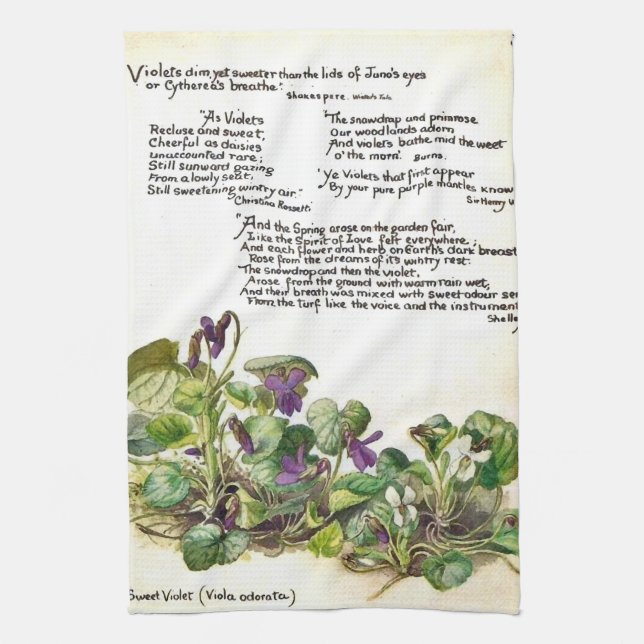 Violets dim, yet sweeter than the lids of Juno's eyes
or Cytherea's breathe."
Shakespere. Winter's Tale.
"As Violets
Recluse and sweat,
Cheerful as daisies
unaccounted rare;
Still sunward gazing
From a lowly seat,
Still sweetening wintry air."
Christina Rossetti
"The snowdrop and primrose
Our woodlands adorn
And violets bathe mid the weet
o' the morn". Burns.
'Ye Violets that first appear
By your pure purple mantles know
Sir Henry W
"And the Spring arose on the garden fair,
Like the Spirit of Love felt everywhere;
And each flower and herb on Earth's dark breast
Rose from the dreams of its wintry rest.
The snowdrop and then the violet,
Arose from the ground with warm rain wet,
And their breath was mixed with sweet odour sen
From the turf like the voice and the instrumen
Shelle
Sweet Violet (Viola odorata)